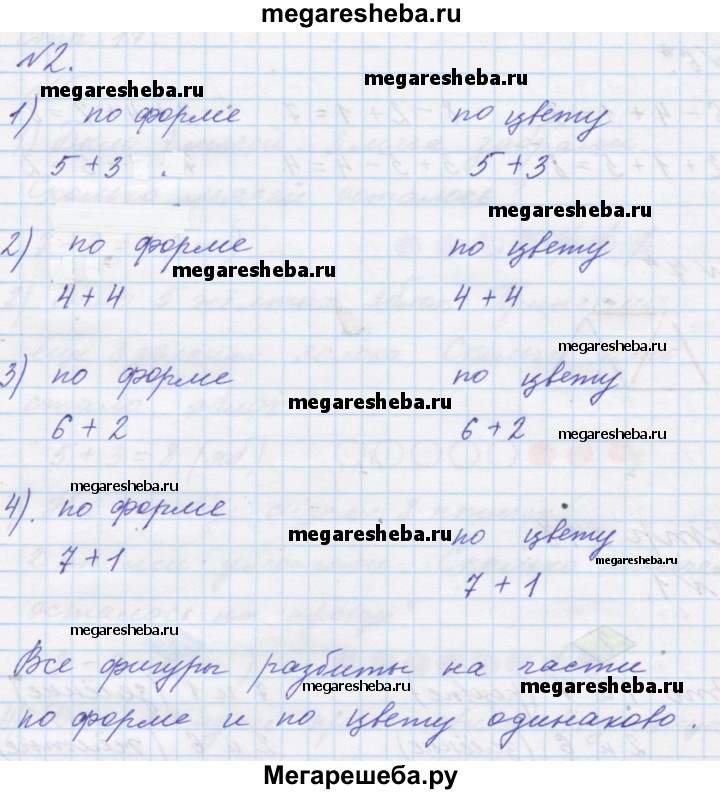 megaresheba.ru
N2.
megaresheba.ru megaresheba.ru
1) по форме по цвету
5 + 3 5 + 3
megaresheba.ru
2) по форме по цвету
megaresheba.ru
4 + 4 4 + 4
megaresheba.ru
3) по форме по цвету
megaresheba.ru
6 + 2 6 + 2 megaresheba.ru
megaresheba.ru
4). по форме
megaresheba.ru по цвету
7 + 1 megaresheba.ru
7 + 1
megaresheba.ru
Все фигуры разбиты на части
megaresheba.ru megaresheba.ru
по форме и по цвету одинаково.
Мегарешеба.ру